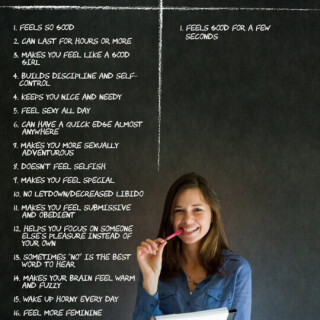 1. FEELS SO GOOD
2. CAN LAST FOR HOURS OR MORE
3. MAKES YOU FEEL LIKE A GOOD
GIRL
4. BUILDS DISCIPLINE AND SELF-
CONTROL
4. KEEPS YOU NICE AND NEEDY
5. FEEL SEXY ALL DAY
6. CAN HAVE A QUICK EDGE ALMOST
ANYWHERE
7. MAKES YOU MORE SEXUALLY
ADVENTUROUS
8. DOESN'T FEEL SELFISH
9. MAKES YOU FEEL SPECIAL
10. NO LETDOWN/DECREASED LIBIDO
11. MAKES YOU FEEL SUBMISSIVE
AND OBEDIENT
12. HELPS YOU FOCUS ON SOMEONE
ELSE'S PLEASURE INSTEAD OF
YOUR OWN
13. SOMETIMES "NO" IS THE BEST
WORD TO HEAR
14. MAKES YOUR BRAIN FEEL WARM
AND FUZZY
15. WAKE UP HORNY EVERY DAY
16. FEEL MORE FEMININE
1. FEELS GOOD FOR A FEW
SECONDS